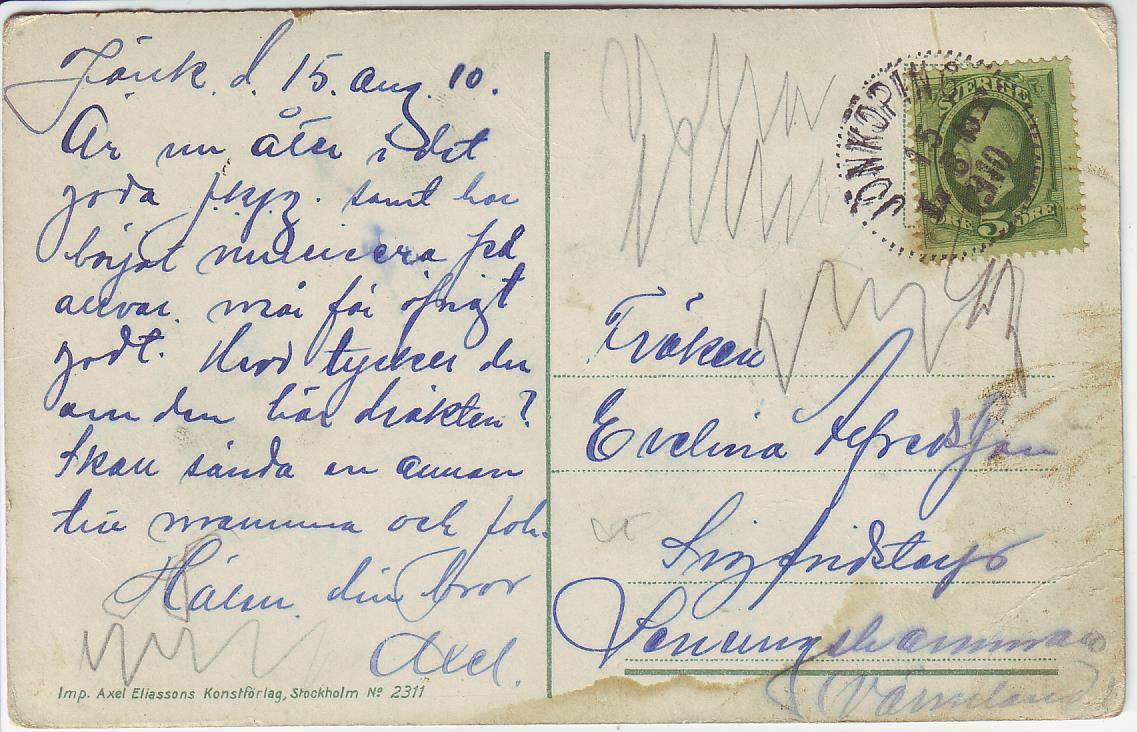 Jönk. d. 15. aug. 10.
Är nu åter i det
goda jkpg. samt har
börjat musicera på
allvar. mår för öfrigt
godt. Hvad tycker du
om den här dräkten?
Skall sända en annan
till mamma och joh.
Hälsn. din bror
Axel.
Imp. Axel Eliassons Konstförlag, Stockholm No 2311
JÖNKÖPING
15 8
SVERIGE
5 ÖRE
Fröken
Evelina Alfredsson
Sigfridstorp
Värmland